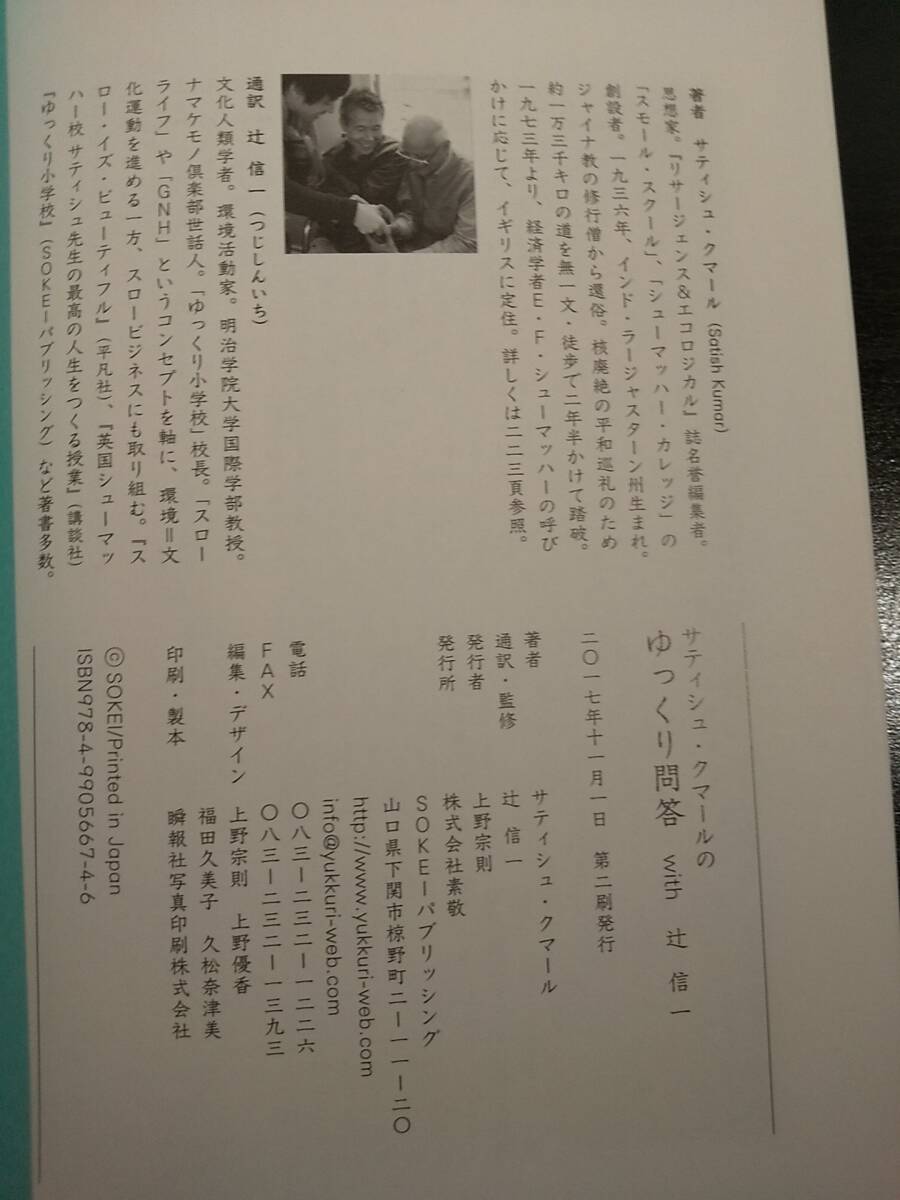 著者　サティシュ・クマール　(Satish Kumar)
思想家。『リサージェンス&エコロジカル』誌名誉編集者。
「スモール・スクール」、「シューマッハー・カレッジ」の
創設者。一九三六年、インド・ラージャスターン州生まれ。
ジャイナ教の修行僧から還俗。核廃絶の平和巡礼のため
約一万三千キロの道を無一文・徒歩で二年半かけて踏破。
一九七三年より、経済学者E・F・シューマッハーの呼び
かけに応じて、イギリスに定住。詳しくは二二三頁参照。
通訳　辻　信一（つじしんいち）
文化人類学者。環境活動家。明治学院大学国際学部教授。
ナマケモノ倶楽部世話人。「ゆっくり小学校」校長。「スロー
ライフ」や「GNH」というコンセプトを軸に、環境＝文
化運動を進める一方、スロービジネスにも取り組む。『ス
ロー・イズ・ビューティフル』（平凡社）、『英国シューマッ
ハー校 サティシュ先生の最高の人生をつくる授業』（講談社）
『ゆっくり小学校』（SOKEIパブリッシング）など著書多数。
サティシュ・クマールの
ゆっくり問答　with　辻　信一
二〇一七年十一月一日　第二刷発行
著者　サティシュ・クマール
通訳・監修　辻　信一
発行者　上野宗則
発行所　株式会社素敬
SOKEIパブリッシング
山口県下関市椋野町二ー一一ー二〇
http://www.yukkuri-web.com
info@yukkuri-web.com
電話　〇八三ー二三二ー一二二六
FAX　〇八三ー二三二ー一三九三
編集・デザイン　上野宗則　上野優香
福田久美子　久松奈津美
印刷・製本　瞬報社写真印刷株式会社
©SOKEI/Printed in Japan
ISBN978-4-9905667-4-6